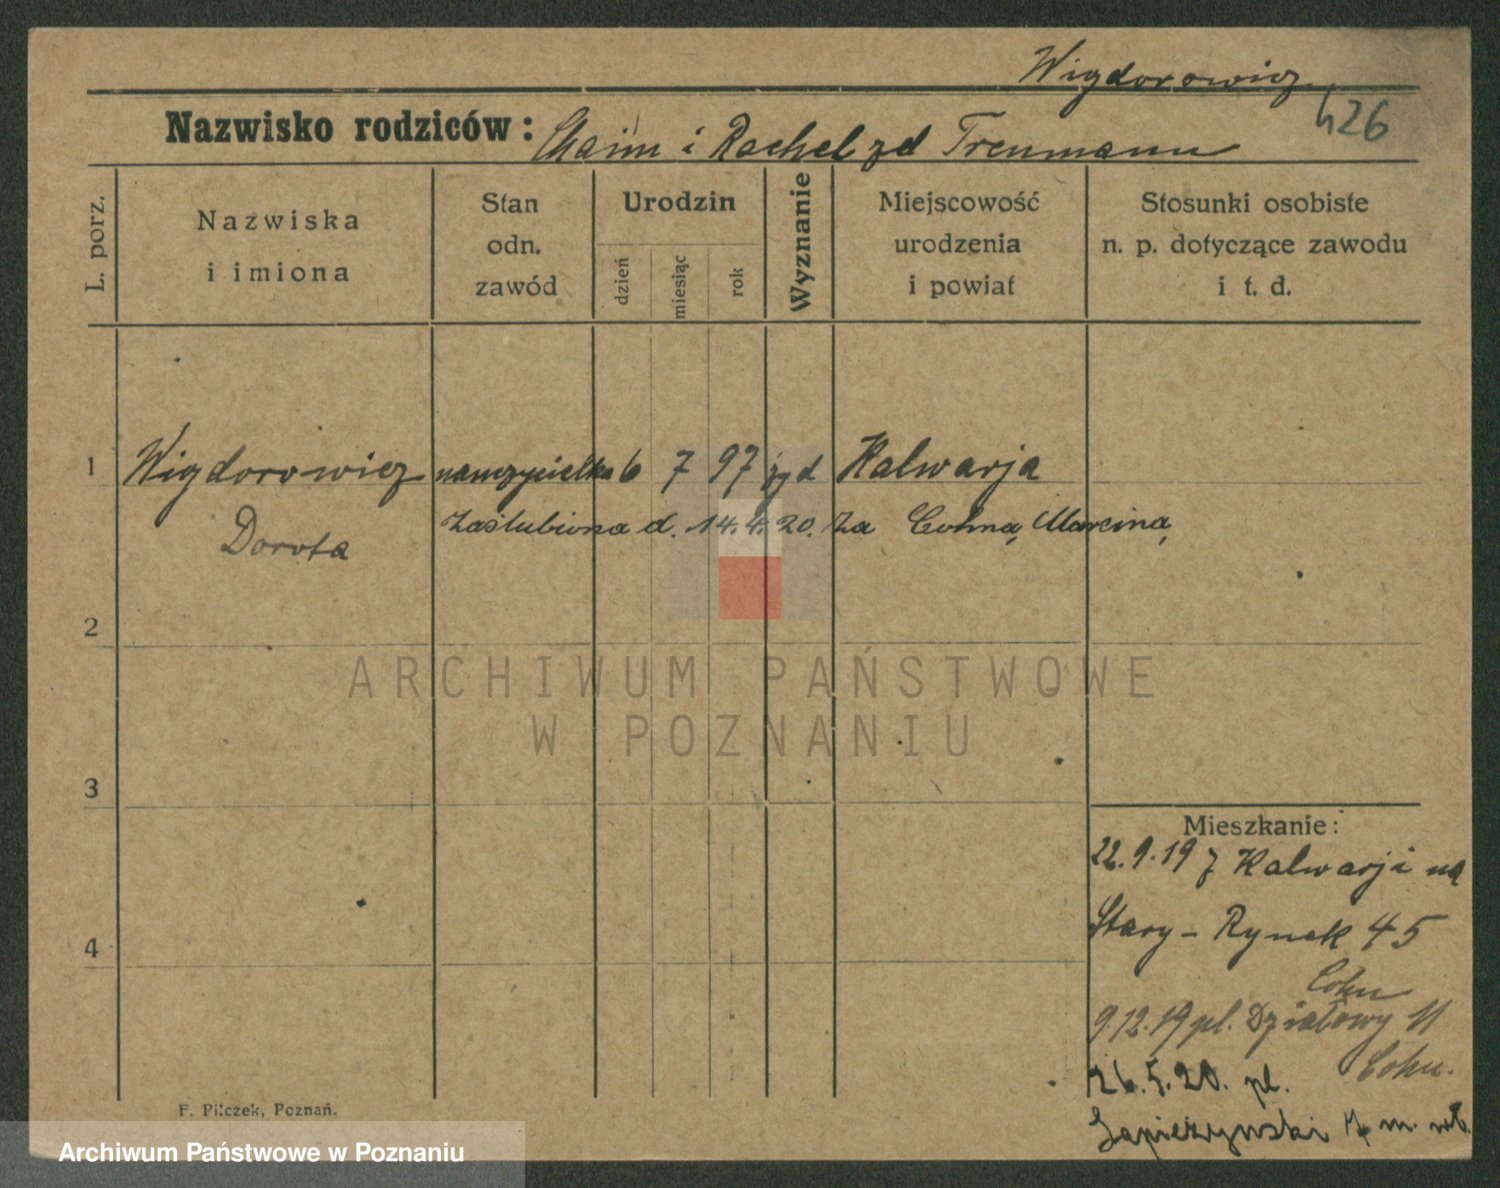 Wigdorowicz
426
Nazwisko rodziców: Chaim i Rachel zd Treumann
L. porz.
Nazwiska
i imiona
Stan
odn.
zawód
Urodzin
dzień
miesiąc
rok
Wyznanie
Miejscowość
urodzenia
i powiat
Stosunki osobiste
n. p. dotyczące zawodu
i t. d.
1 Wigdorowicz nauczycielka 6 7 97 żyd Kalwarja
Dorota
zaślubiona d. 14.4.20. za Cohna, Marcina,
2
3
4
ARCHIWUM PAŃSTWOWE
W POZNANIU
Mieszkanie:
22.9.19 z Kalwarji na
Stary - Rynek 45
Cohn
9.12.19 pl. Działowy 11
Cohn.
26.5.20. pl.
Sapieżyński 7 m.
F. Pilczek, Poznań.
Archiwum Państwowe w Poznaniu